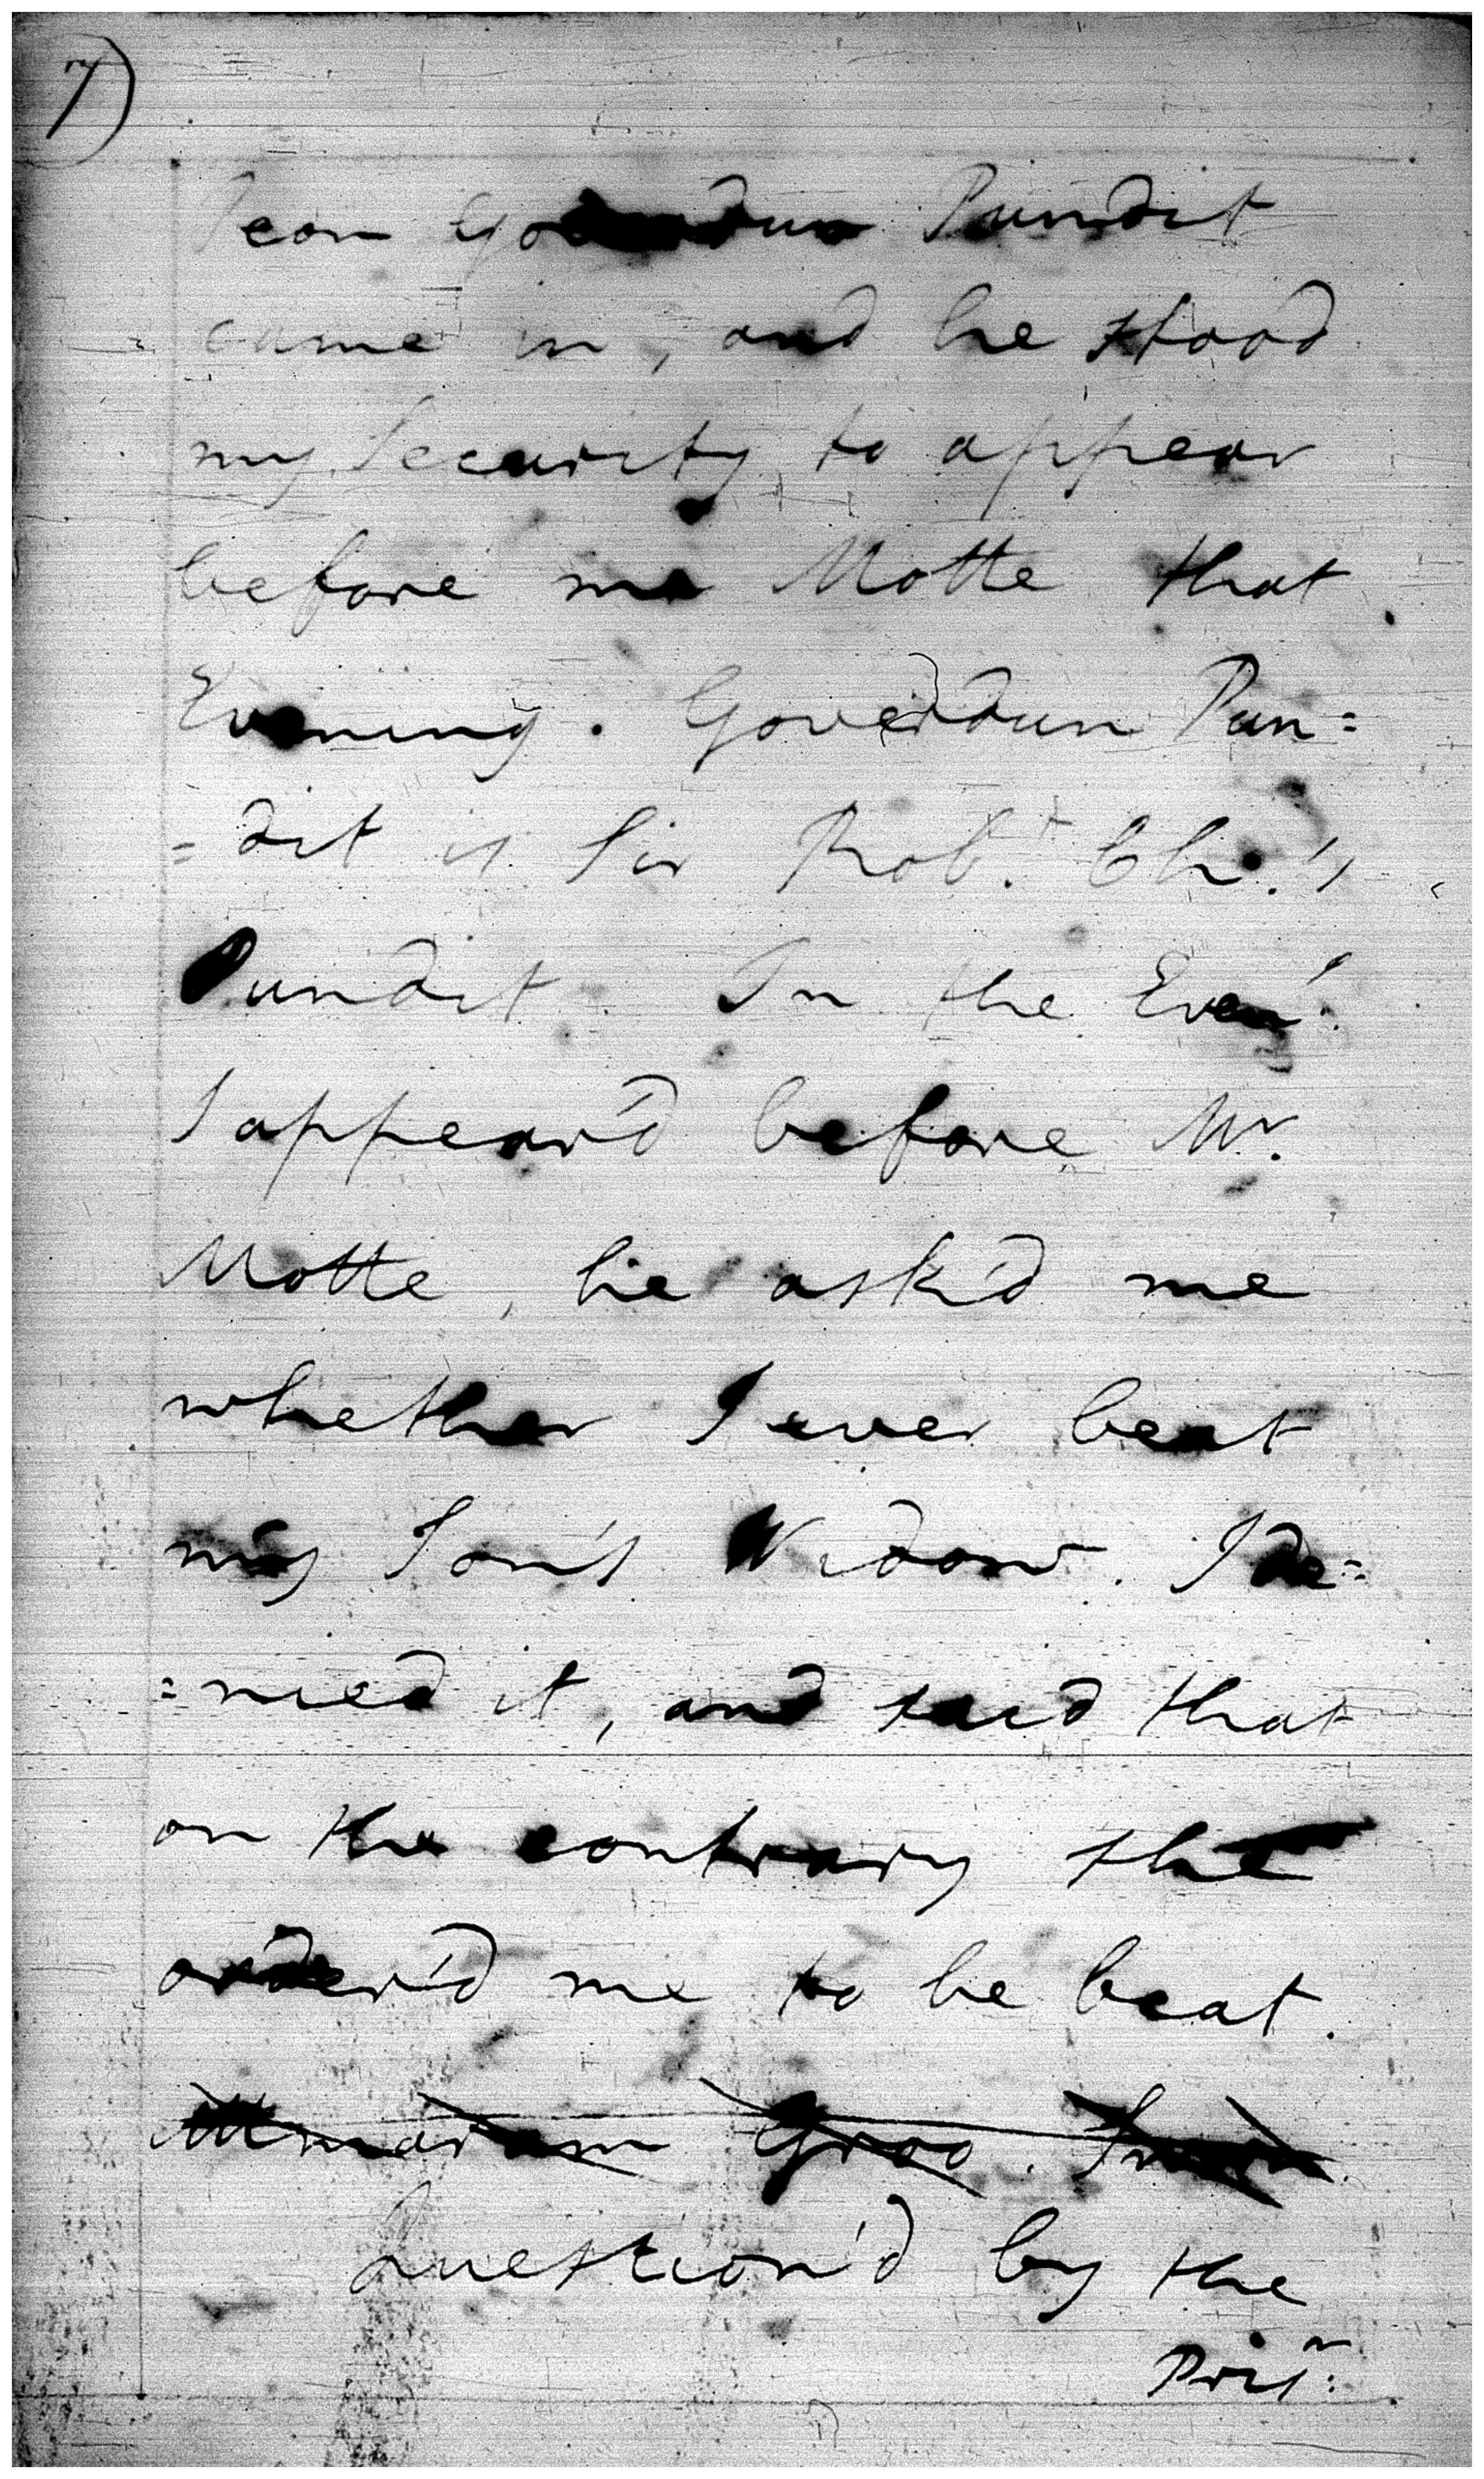 7)
Pundit
came in, and he stood
my Security to appear
before me Motte that
Evening. Goverdun Pun=
=dit is Sir Robt. Ch.'s
Pundit. In the Eveng.
I appear'd before Mr.
Motte, he ask'd me
whether I ever beat
my Son's Widow. I de=
=nied it, and said that
on the contrary she
order'd me to be beat.
Question'd by the
Prisr.